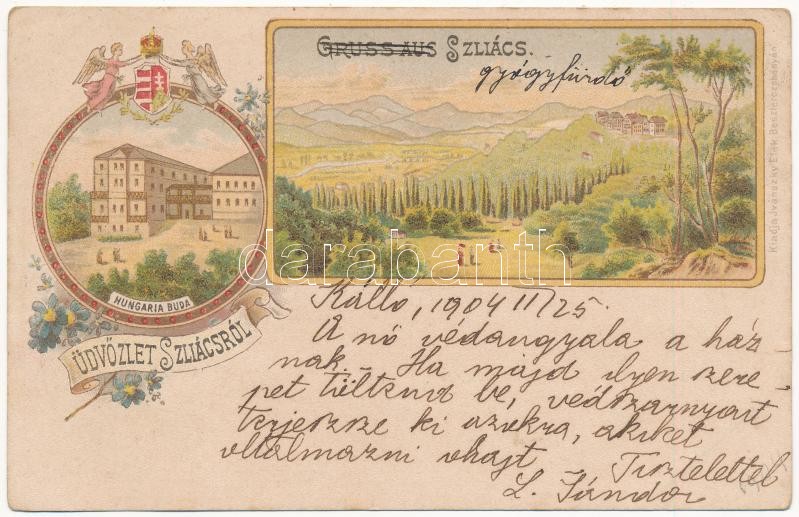 GRUSS AUS SZLIÁCS.
gyógyfürdő
HUNGARIA BUDA
ÜDVÖZLET SZLIÁCSRÓL
darabanth
Kiadja Ivánszky Elek Beszterczebányán
Kálló, 1904 II/25.
A nő védangyala a ház-
nak. Ha majd ilyen szere-
pet töltend be, védszárnyait
terjessze ki azokra, akiket
oltalmazni óhajt
Tisztelettel
L. Sándor